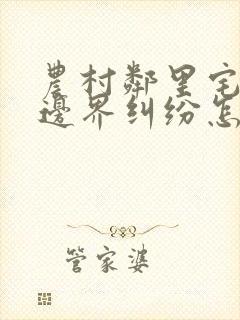 農村鄰里宅
邊界糾紛怎
管家婆